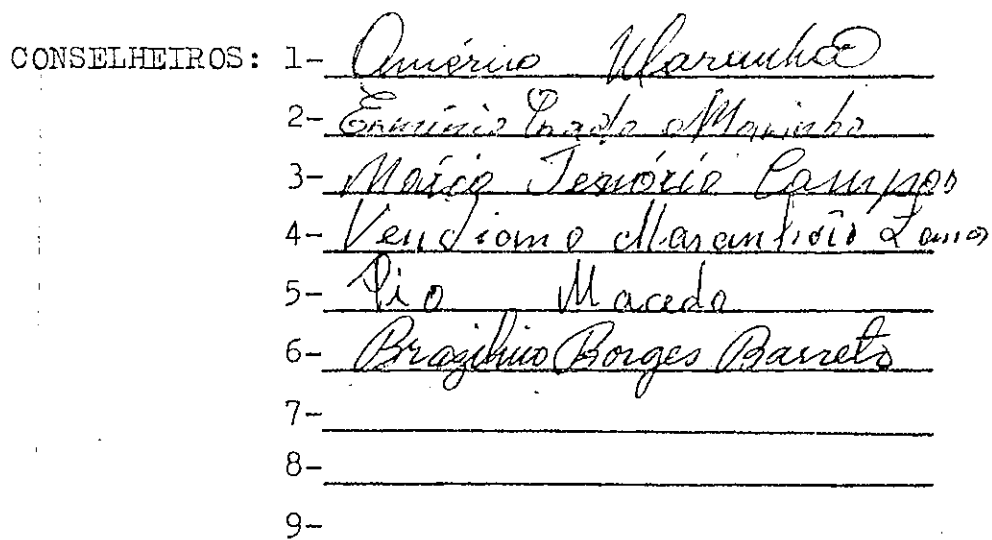 CONSELHEIROS: 1- Américo Maranhão
2- Ermínio Prado Marinho
3- Mário Tenório Campos
4- Vendiomo Maranhão
5- Pio Macedo
6- Brazilino Borges Barreto
7-
8-
9-